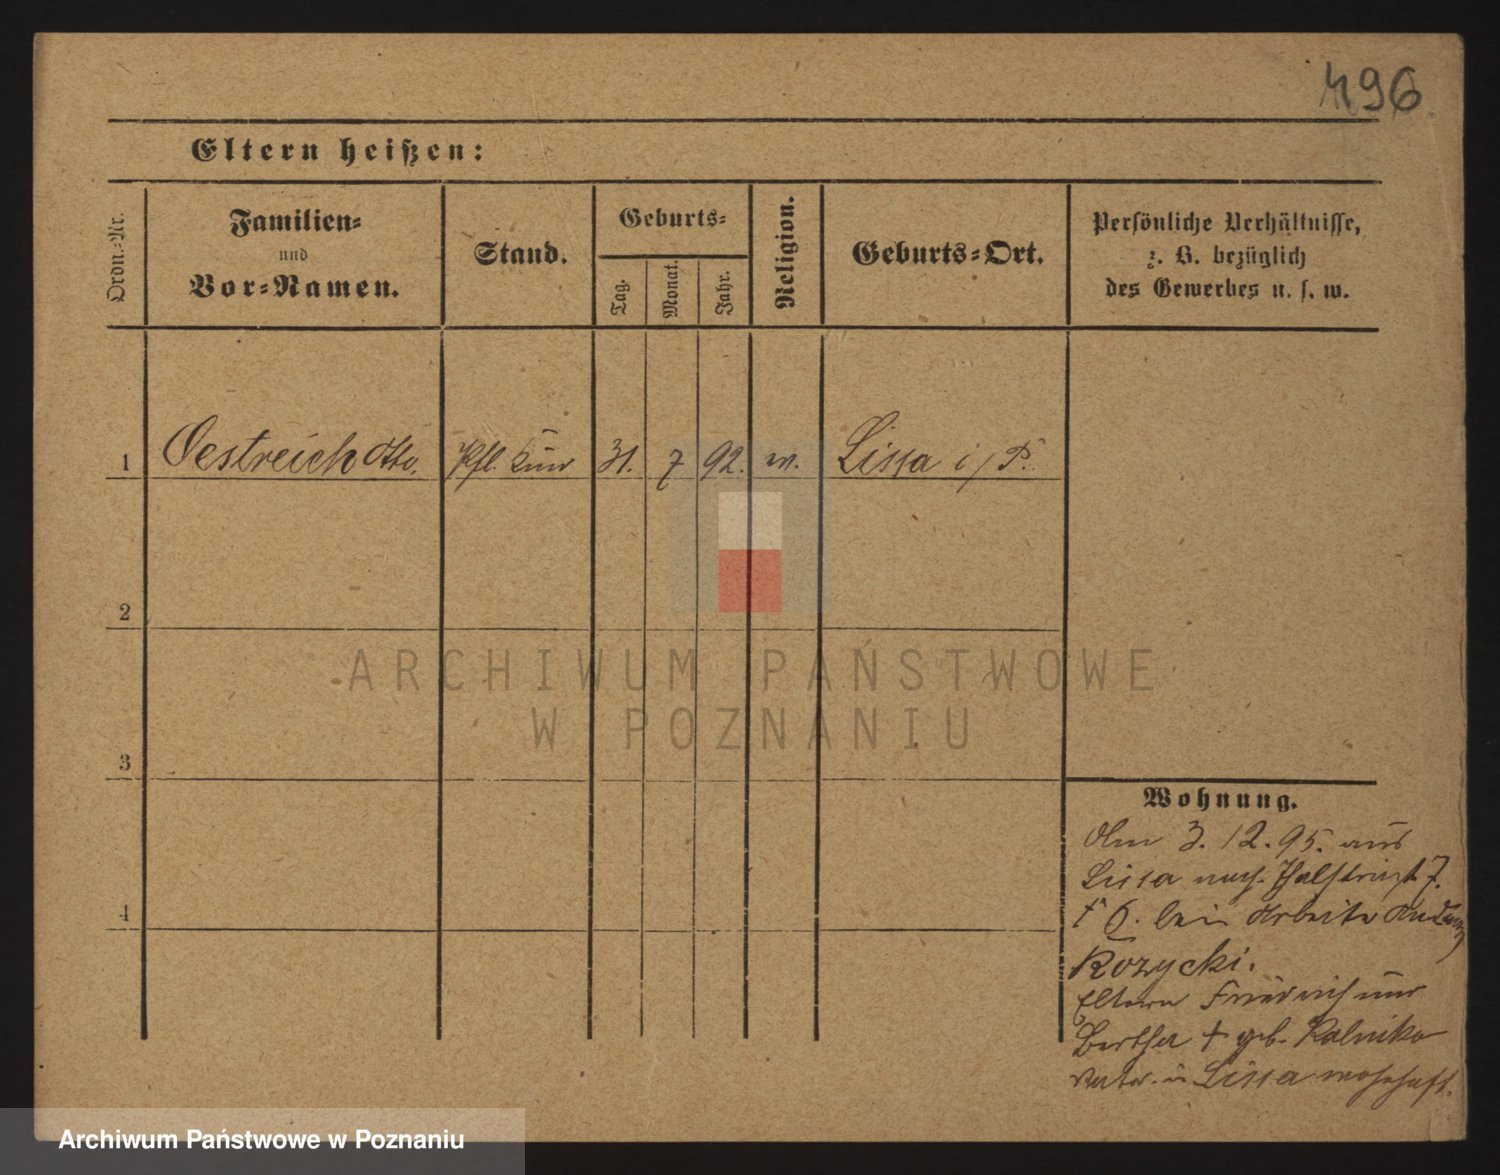 496
Eltern heißen:
Ordn.-Nr.
Familien-
und
Vor-Namen.
Stand.
Geburts-
Tag.
Monat.
Jahr.
Religion.
Geburts-Ort.
Persönliche Verhältnisse,
z. B. bezüglich
des Gewerbes u. s. w.
1 Oestreich Otto. Pfl. Kind 31. 7 92. ev. Lissa i/P.
2
3
4
Wohnung.
Am 3. 12. 95. aus
Lissa nach 7.
bei Arbeiter
Rozycki.
Eltern Friedrich und
Bertha † geb. Kalnike
Vater in Lissa wohnhaft.
ARCHIWUM PAŃSTWOWE
W POZNANIU
Archiwum Państwowe w Poznaniu